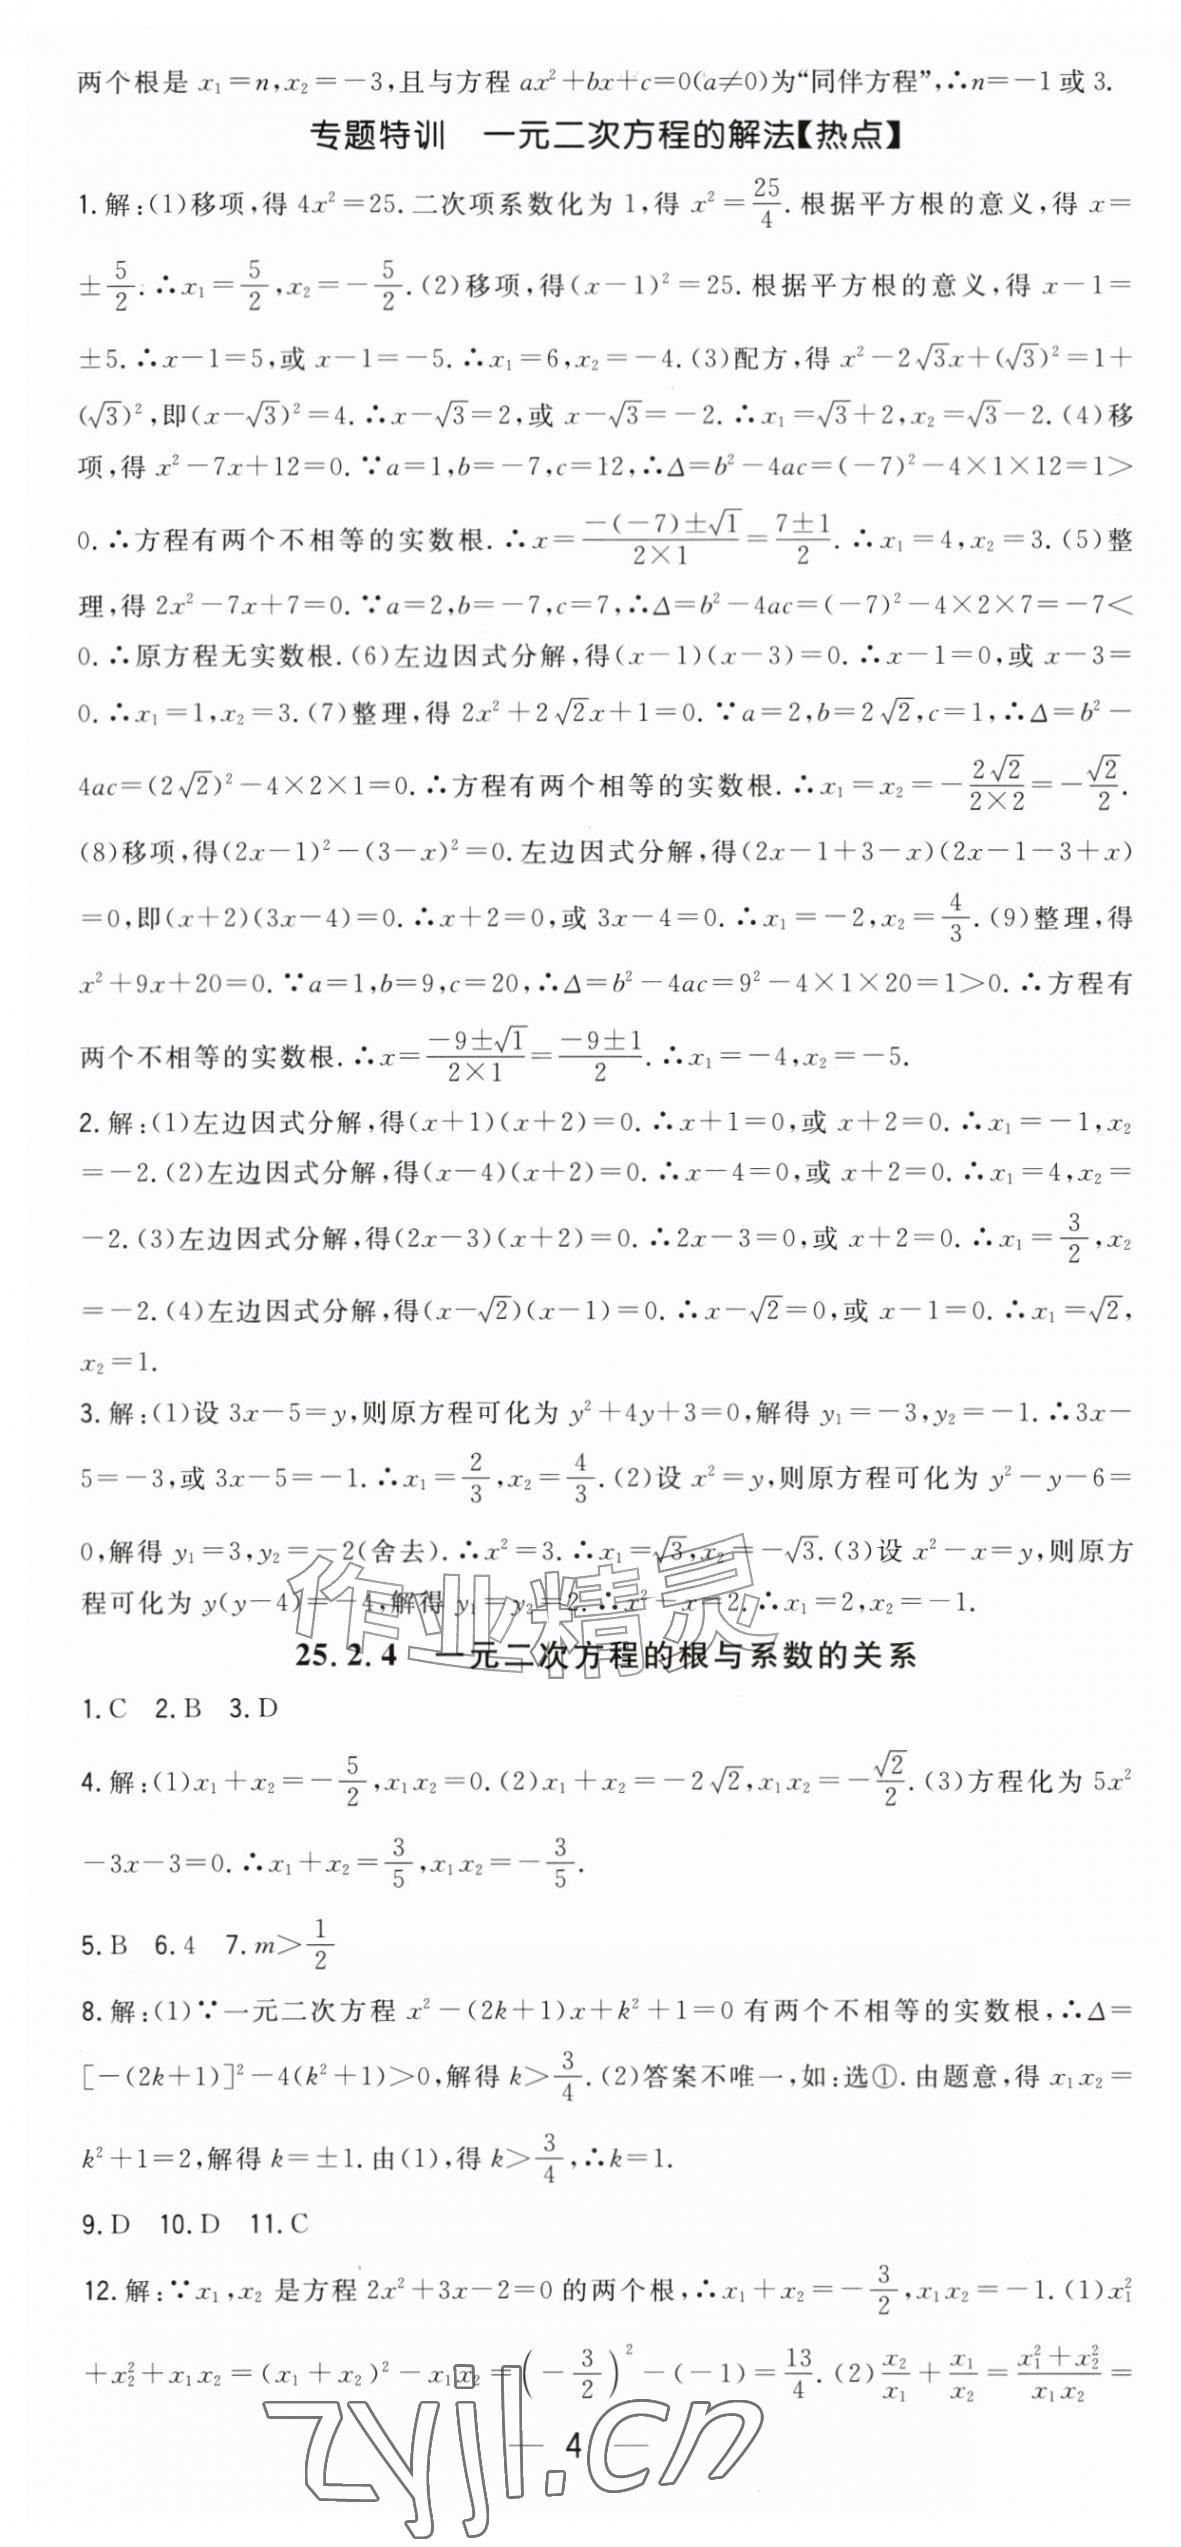 两个根是 x₁=n,x₂=-3,且与方程 ax²+bx+c=0(a≠0)为“同伴方程”,∴n=-1 或 3.
专题特训　一元二次方程的解法【热点】
1.解:(1)移项,得 4x²=25.二次项系数化为 1,得 x²=25/4.根据平方根的意义,得 x=
±5/2.∴x₁=5/2,x₂=-5/2.(2)移项,得(x-1)²=25.根据平方根的意义,得 x-1=
±5.∴x-1=5,或 x-1=-5.∴x₁=6,x₂=-4.(3)配方,得 x²-2√3x+(√3)²=1+
(√3)²,即(x-√3)²=4.∴x-√3=2,或 x-√3=-2.∴x₁=√3+2,x₂=√3-2.(4)移
项,得 x²-7x+12=0.∵a=1,b=-7,c=12,∴Δ=b²-4ac=(-7)²-4×1×12=1>
0.∴方程有两个不相等的实数根.∴x=(-(-7)±√1)/(2×1)=(7±1)/2.∴x₁=4,x₂=3.(5)整
理,得 2x²-7x+7=0.∵a=2,b=-7,c=7,∴Δ=b²-4ac=(-7)²-4×2×7=-7<
0.∴原方程无实数根.(6)左边因式分解,得(x-1)(x-3)=0.∴x-1=0,或 x-3=
0.∴x₁=1,x₂=3.(7)整理,得 2x²+2√2x+1=0.∵a=2,b=2√2,c=1,∴Δ=b²-
4ac=(2√2)²-4×2×1=0.∴方程有两个相等的实数根.∴x₁=x₂=-2√2/(2×2)=-√2/2.
(8)移项,得(2x-1)²-(3-x)²=0.左边因式分解,得(2x-1+3-x)(2x-1-3+x)
=0,即(x+2)(3x-4)=0.∴x+2=0,或 3x-4=0.∴x₁=-2,x₂=4/3.(9)整理,得
x²+9x+20=0.∵a=1,b=9,c=20,∴Δ=b²-4ac=9²-4×1×20=1>0.∴方程有
两个不相等的实数根.∴x=(-9±√1)/(2×1)=(-9±1)/2.∴x₁=-4,x₂=-5.
2.解:(1)左边因式分解,得(x+1)(x+2)=0.∴x+1=0,或 x+2=0.∴x₁=-1,x₂
=-2.(2)左边因式分解,得(x-4)(x+2)=0.∴x-4=0,或 x+2=0.∴x₁=4,x₂=
-2.(3)左边因式分解,得(2x-3)(x+2)=0.∴2x-3=0,或 x+2=0.∴x₁=3/2,x₂
=-2.(4)左边因式分解,得(x-√2)(x-1)=0.∴x-√2=0,或 x-1=0.∴x₁=√2,
x₂=1.
3.解:(1)设 3x-5=y,则原方程可化为 y²+4y+3=0,解得 y₁=-3,y₂=-1.∴3x-
5=-3,或 3x-5=-1.∴x₁=2/3,x₂=4/3.(2)设 x²=y,则原方程可化为 y²-y-6=
0,解得 y₁=3,y₂=-2(舍去).∴x²=3.∴x₁=√3,x₂=-√3.(3)设 x²-x=y,则原方
程可化为 y(y-4)=-4,解得 y₁=y₂=2.∴x²-x=2.∴x₁=2,x₂=-1.
作业精灵
25.2.4　一元二次方程的根与系数的关系
1.C　2.B　3.D
4.解:(1)x₁+x₂=-5/2,x₁x₂=0.(2)x₁+x₂=-2√2,x₁x₂=-√2/2.(3)方程化为 5x²
-3x-3=0.∴x₁+x₂=3/5,x₁x₂=-3/5.
5.B　6.4　7.m>1/2
8.解:(1)∵一元二次方程 x²-(2k+1)x+k²+1=0 有两个不相等的实数根,∴Δ=
[-(2k+1)]²-4(k²+1)>0,解得 k>3/4.(2)答案不唯一,如:选①.由题意,得 x₁x₂=
k²+1=2,解得 k=±1.由(1),得 k>3/4,∴k=1.
9.D　10.D　11.C
12.解:∵x₁,x₂ 是方程 2x²+3x-2=0 的两个根,∴x₁+x₂=-3/2,x₁x₂=-1.(1)x₁²
+x₂²+x₁x₂=(x₁+x₂)²-x₁x₂=(-3/2)²-(-1)=13/4.(2)x₂/x₁+x₁/x₂=(x₁²+x₂²)/(x₁x₂)=
zyjl.cn
— 4 —